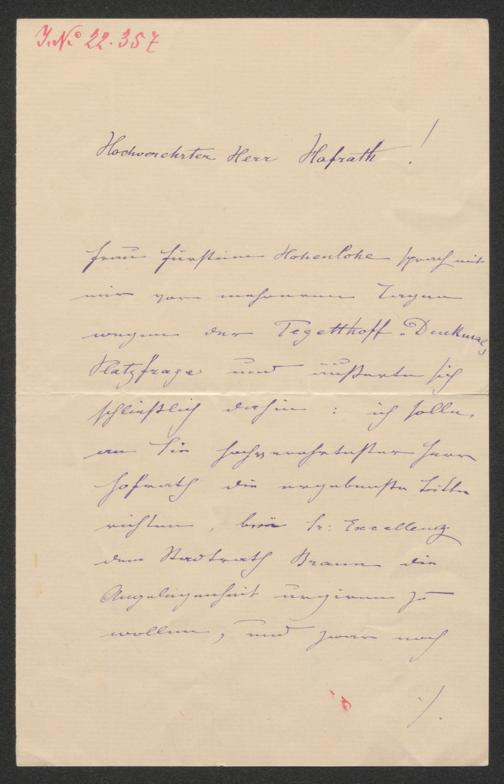 J. No 22.357
Hochverehrter Herr Hofrath!
Frau Fürstin Hohenlohe sprach mit
mir vor mehreren Tagen
wegen der Tegetthoff-Denkmals
Platzfrage und äußerte sich
schließlich dahin: ich solle,
an Sie hochverehrtester Herr
Hofrath die ergebenste Bitte
richten, bei Sr: Excellenz
dem Stadtrath Braun die
Angelegenheit urgiren zu
wollen, und zwar noch
./.